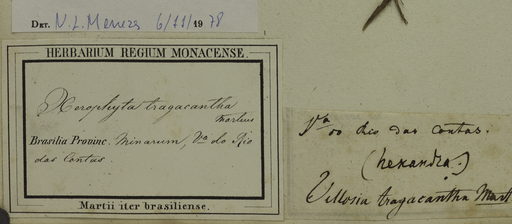 DET. N. L. Menezes 6/11/1978
HERBARIUM REGIUM MONACENSE.
Xerophyta tragacantha
Martius
Brasilia Provinc. Minarum, Va. do Rio
das Contas.
Martii iter brasiliense.
Va. do Rio das Contas.
(hexandra.)
Vellosia tragacantha Mart